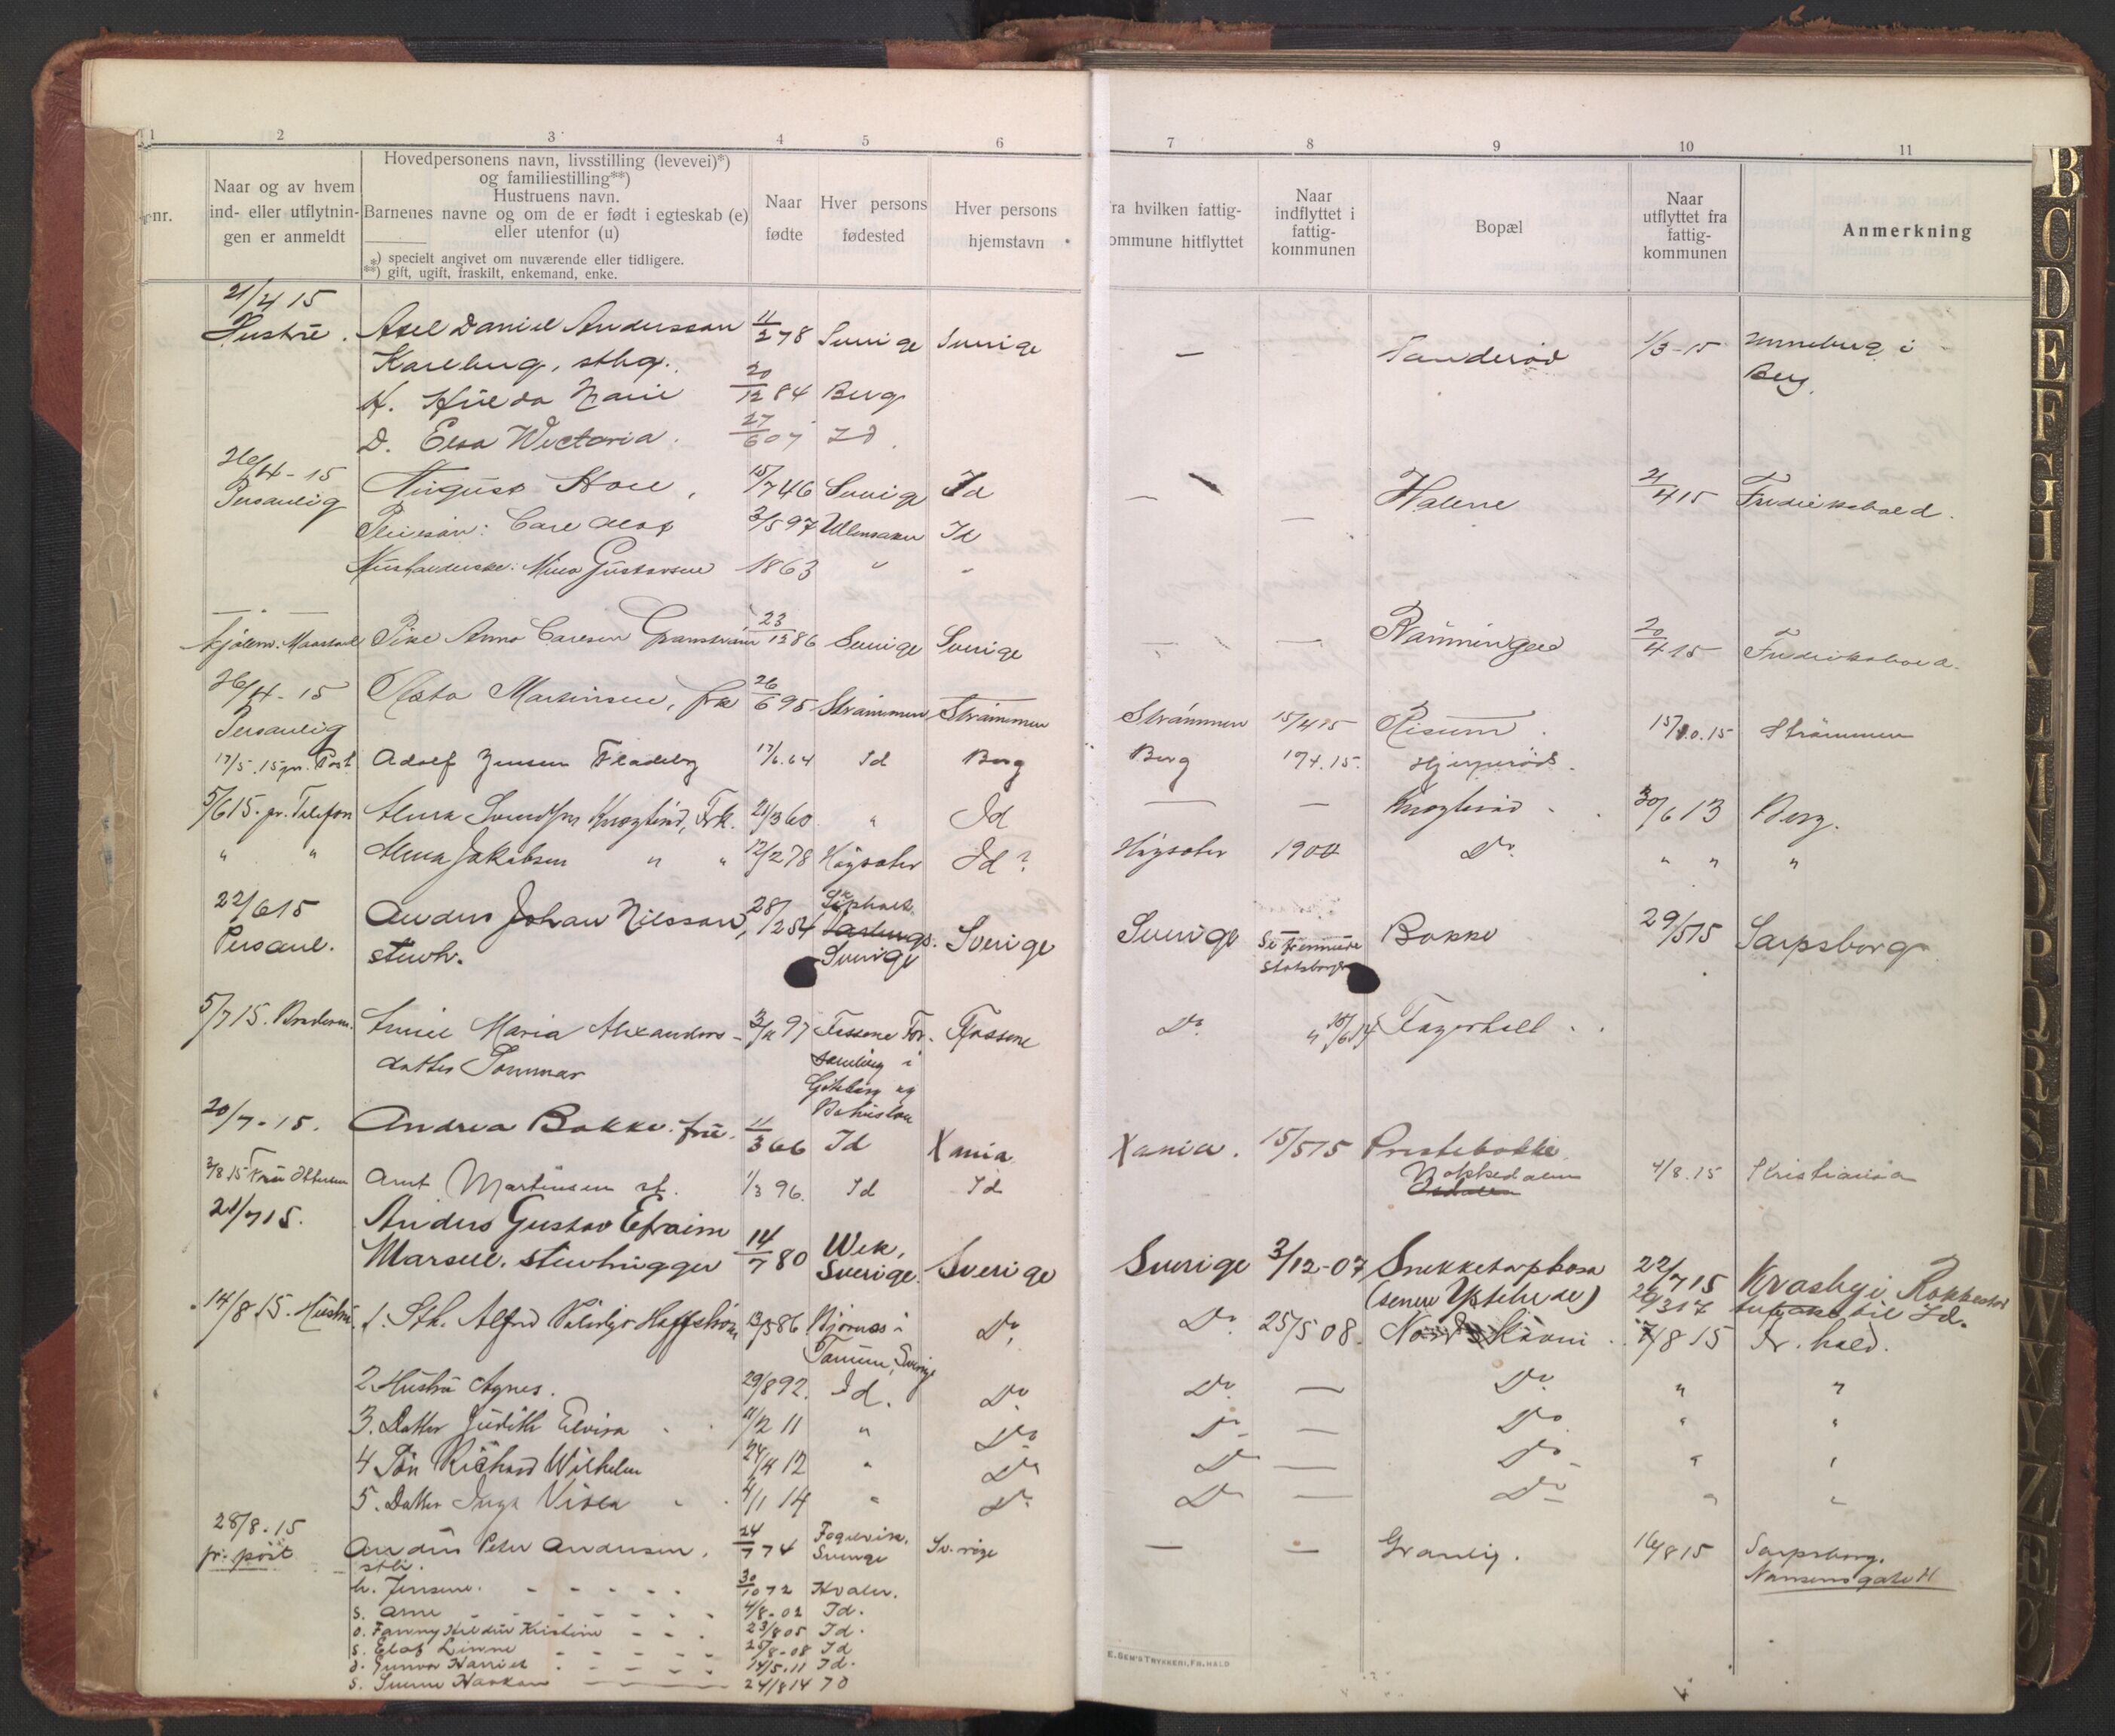 1 2 3 4 5 6 7 8 9 10 11
nr.
Naar og av hvem ind- eller utflytnin- gen er anmeldt
Hovedpersonens navn, livsstilling (levevei)*)
og familiestilling**)
Hustruens navn.
Barnenes navne og om de er født i egteskab (e)
eller utenfor (u)
*) specielt angivet om nuværende eller tidligere.
**) gift, ugift, fraskilt, enkemand, enke.
Naar fødte
Hver persons fødested
Hver persons hjemstavn
ra hvilken fattig-
ommune hitflyttet
Naar indflyttet i fattig- kommunen
Bopæl
Naar utflyttet fra fattig- kommunen
Anmerkning
21/4 15
Hustru. Axel Daniel Andersson 11/2 78 Sverige Sverige — Tanderød 1/3-15 Unneberg i
Karlberg, sthg. Berg.
H. Hulda Marie 20/12 84 Berg
D. Elsa Wictoria. 27/6 07 Id.
26/4-15
Personlig August Hoel, 15/7 46 Sverige Id — Halene 21/4 15 Fredrikshald.
Pleiesøn: Carl Olof 3/5 97 Ullensaker Id —
Husholderske: Mina Gustavsen 1863 " "
Pike Anna Carlson Granström 23/12 86 Sverige Sverige — — Rønningen 20/4 15 Fredrikshald.
26/4-15 Martinsen, frk 26/6 95 Strømmen Strømmen Strømmen 15/4 15 Risum. 15/10.15 Strømmen
Personlig
17/5.15 pr. Post. Adolf Jensen Fladeby 17/6.64 Id Berg Berg 17/4.15. Hjerperöd.
5/6 15. pr. Telefon Frk. 21/3 60 " Id — — 30/6 13 Berg.
" " Jakobsen " " 12/2 78 Høysater Id? Høysater 1900 Do. " " "
22/6 15 Anders Johan Nilsson, 28/12 54 Sverige Sverige Sverige Se fremmede Bakke 29/5 15 Sarpsborg
Personl. stenh. statsborgere
5/7 15. Maria Alexanders- 97 Fossene For- Fossene Do " 6/14 Fagerholt.
datter Sommar samling i
Göteborg og
Bohuslän
20/7-15. Andrea Bakke. frue. 11/3 66 Id Xania Xania. 15/5 15 Prestebakke
3/8 15 Fru Ottersen Arnt Martinsen st. 1/3 96. Id Id Bakkedalen 4/8.15 Kristiania
21/7 15. Anders Gustav Efraim
Marsell. stenhugger 14/7 80 Wek, Sverige. Sverige Sverige 3/12-07 Snekketorpkosa 22/7 15 Krosbyi Rakkestad
(senere Ystehede) til Id.
14/8 15. Hustru. 1. Sth. Alfred Haffström 13/5 86 Bjørnæs i Do. Do. 25/5 08. Nordre Skåni. 7/8 15 Fr. hald.
Tanum, Sverige
2. Hustru Agnes. 29/8 92. Id. Do. Do. — Do. " "
3. Datter Judith Elvira 11/2 11 " Do Do — Do " "
4 Søn Richard Wilhelm 24/4 12 " Do Do — Do " "
5. Datter Inga Viola 4/1 14 " Do. Do — Do " "
28/8.15 Anders Peter Andersen. 24/7 74 Fogelvik, Sverige Sverige — — Granlig. 16/8 15 Sarpsborg.
pr. post sth. Nansensgate 11
h. Jensine. 30/10 72 Hvaler.
s. Arne 4/8-02 Id.
d. Fanny Hildur Kristine 23/8 05 Id.
s. Elof Linne 25/8-08 Id
d. Gunvor Harriet 14/5.11 Id.
s. Sverre Haakon 24/8 14 Id
E. SEM'S TRYKKERI, FR.HALD
B C D E F G H I J K L M N O P Q R S T U W X Y Z Æ Ø